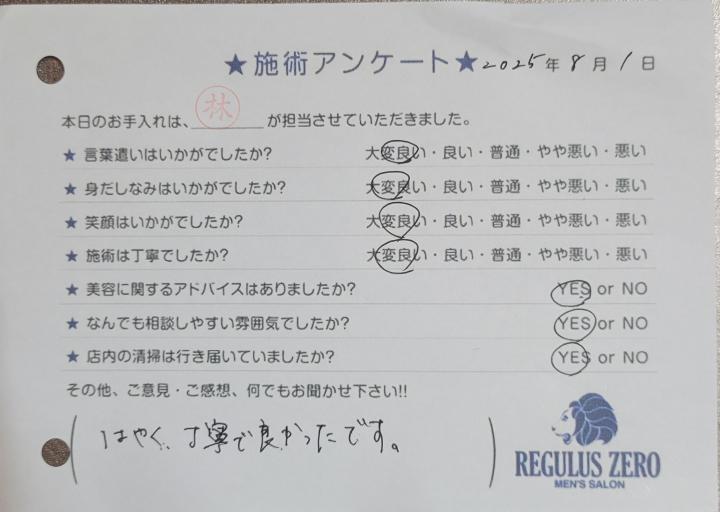 ★施術アンケート★ 2025年8月1日
本日のお手入れは、林が担当させていただきました。
★ 言葉遣いはいかがでしたか? 大変良い・良い・普通・やや悪い・悪い
★ 身だしなみはいかがでしたか? 大変良い・良い・普通・やや悪い・悪い
★ 笑顔はいかがでしたか? 大変良い・良い・普通・やや悪い・悪い
★ 施術は丁寧でしたか? 大変良い・良い・普通・やや悪い・悪い
★ 美容に関するアドバイスはありましたか? YES or NO
★ なんでも相談しやすい雰囲気でしたか? YES or NO
★ 店内の清掃は行き届いていましたか? YES or NO
その他、ご意見・ご感想、何でもお聞かせ下さい!!
(はやく、丁寧で良かったです。)
REGULUS ZERO
MEN'S SALON